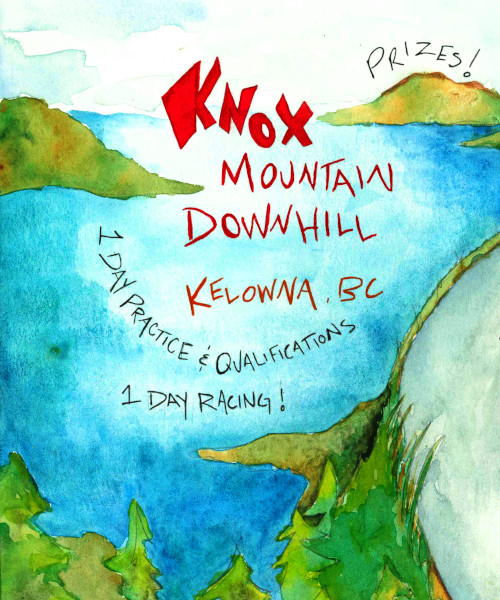 PRIZES!
KNOX
MOUNTAIN
DOWNHILL
KELOWNA, BC
1 DAY PRACTICE & QUALIFICATIONS
1 DAY RACING!